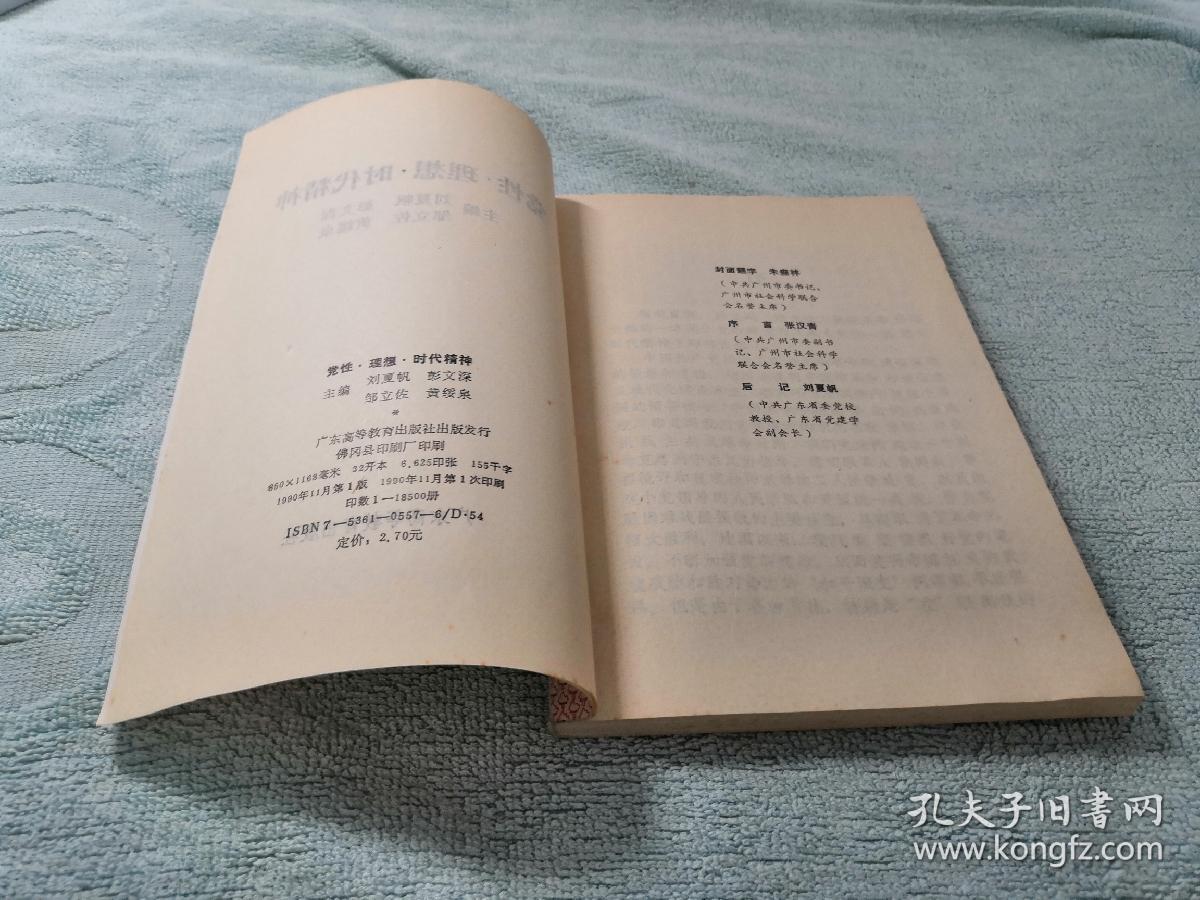 党性·理想·时代精神
刘夏帆 彭文深
主编
邹立佐 黄绥泉
*
广东高等教育出版社出版发行
佛冈县印刷厂印刷
850×1168毫米 32开本 6.625印张 155千字
1990年11月第1版 1990年11月第1次印刷
印数1—18500册
ISBN7—5361—0557—6/D·54
定价：2.70元
封面题字 朱森林
（中共广州市委书记、
广州市社会科学联合
会名誉主席）
序 言 张汉青
（中共广州市委副书
记、广州市社会科学
联合会名誉主席）
后 记 刘夏帆
（中共广东省委党校
教授、广东省党建学
会副会长）
孔夫子旧书网
www.kongfz.com